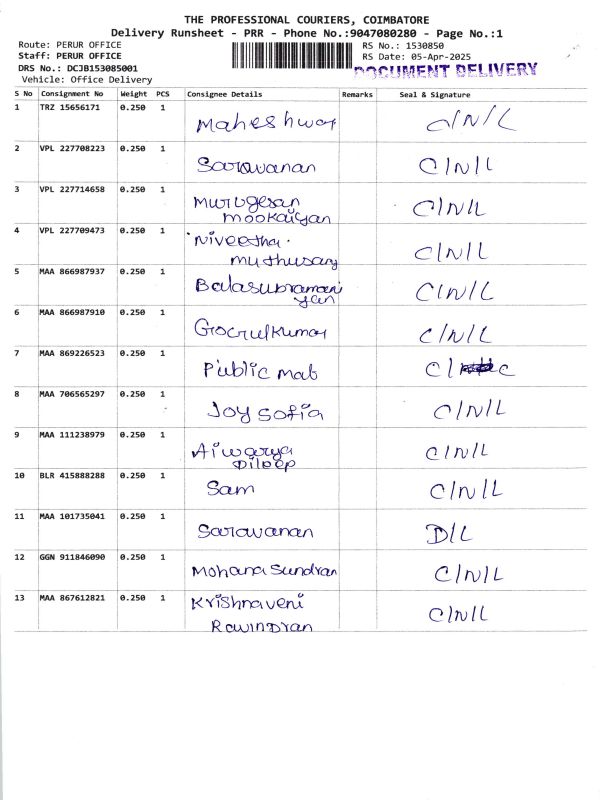 THE PROFESSIONAL COURIERS, COIMBATORE
Delivery Runsheet - PRR - Phone No.:9047080280 - Page No.:1
Route: PERUR OFFICE RS No.: 1530850
Staff: PERUR OFFICE RS Date: 05-Apr-2025
DRS No.: DCJB153085001 DOCUMENT DELIVERY
Vehicle: Office Delivery
S No Consignment No Weight PCS Consignee Details Remarks Seal & Signature
1 TRZ 15656171 0.250 1 Maheshwar C/N/L
2 VPL 227708223 0.250 1 Saravanan C/N/L
3 VPL 227714658 0.250 1 Murugesan
Mookaiyan C/N/L
4 VPL 227709473 0.250 1 Niveetha
muthusamy C/N/L
5 MAA 866987937 0.250 1 Balasubramani
yan C/N/L
6 MAA 866987910 0.250 1 Gocrulkumar C/N/L
7 MAA 869226523 0.250 1 Public mat C/ C
8 MAA 706565297 0.250 1 Joy Sofia C/N/L
9 MAA 111238979 0.250 1 Aiwarya
Dileep C/N/L
10 BLR 415888288 0.250 1 Sam C/N/L
11 MAA 101735041 0.250 1 Saravanan D/L
12 GGN 911846090 0.250 1 Mohana Sundran C/N/L
13 MAA 867612821 0.250 1 Krishnaveni
Rawindran C/N/L